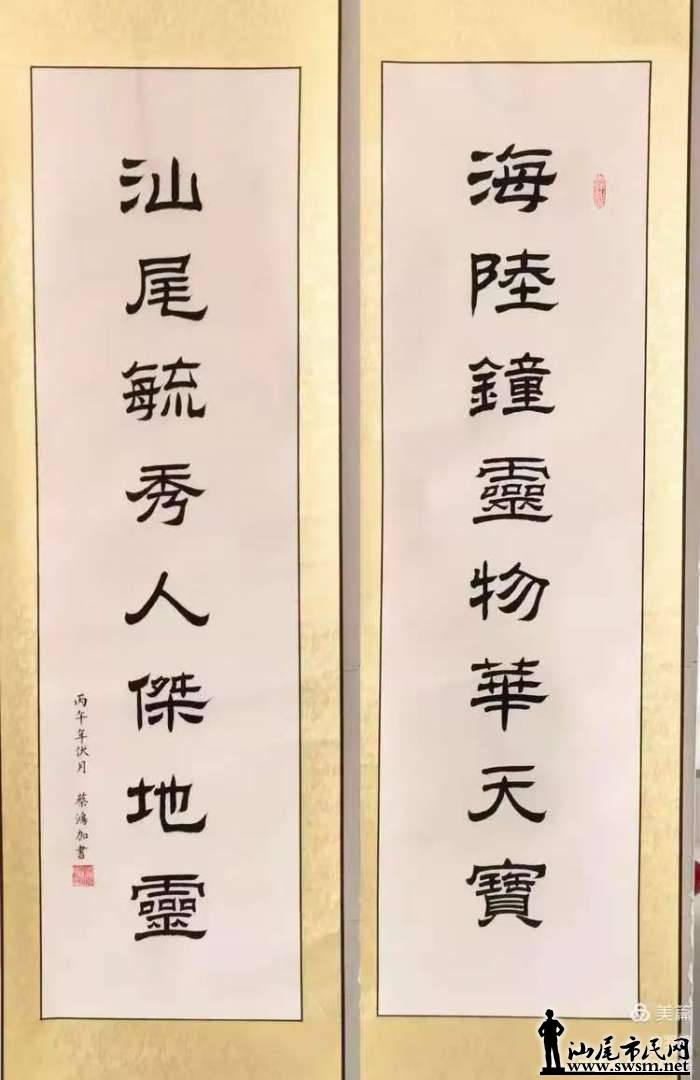 海陸鐘靈物華天寶
汕尾毓秀人傑地靈
丙午年伏月 蔡鴻加書
美篇
汕尾市民网
www.swsm.net